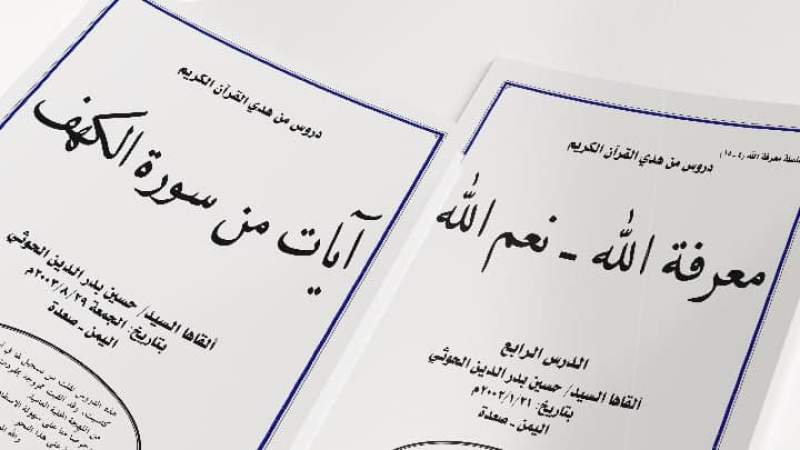 دروس من هدي القرآن الكريم
معرفة الله ـ نعم الله
الدرس الرابع
ألقاها السيد/ حسين بدر الدين الحوثي
بتاريخ: ٢٠٠٢/١/٢١م
اليمن ـ صعدة
دروس من هدي القرآن الكريم
آيات من سورة الكهف
ألقاها السيد/ حسين بدر الدين الحوثي
بتاريخ: الجمعة ٢٠٠٣/٨/٢٩م
اليمن ـ صعدة